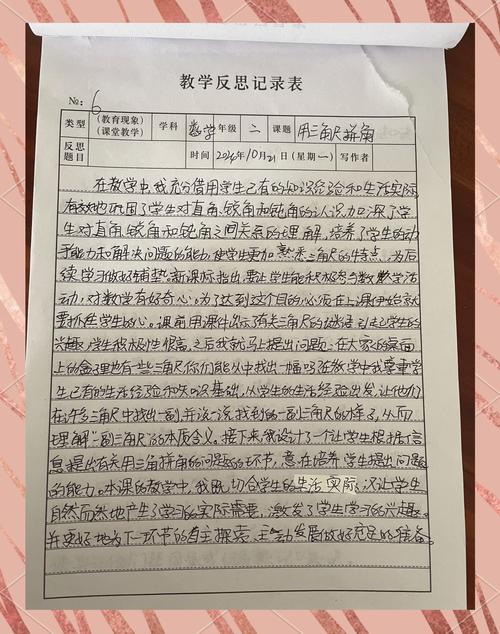 教学反思记录表
№: 6
类型 (教育现象) (课堂教学) 学科 数学 年级 二 课题 用三角尺拼角
反思题目 时间 2024年10月21日(星期一) 写作者
在教学中,我充分借用学生已有的知识经验和生活实际,
有效地巩固了学生对直角、锐角和钝角的认识,加深了学
生对直角、锐角和钝角之间关系的理解,培养了学生的动
手能力和解决问题的能力,使学生更加熟悉三角尺的特点,为后
续学习做好铺垫。新课标指出:要让学生能积极参与数学活
动,对数学有好奇心。为了达到这个目的,必须在上课伊始就
要抓住学生的心。课前用课件出示有关三角尺的谜语引起学生的
兴趣,学生积极性很高。之后我就马上提出问题:在大家的桌面
上的盒里也有一些三角尺你们能从中找出一幅吗?在教学中我尊重学
生已有的生活经验和知识基础,从学生的生活经验出发,让他们
在许多三角尺中找出一副,并说一说找到的一副三角尺的样子,从而
理解"一副三角尺"的本质含义。接下来,我设计了一个让学生根据信
息提出有关用三角拼角的问题的环节,意在培养学生提出问题
的能力。本课的教学中,我既切合学生的生活实际,还让学生
自然而然地产生了学习的实际需要,激发了学生学习的兴趣,
并更好地为下一环节的自主探索、主动发展做好充足的准备。